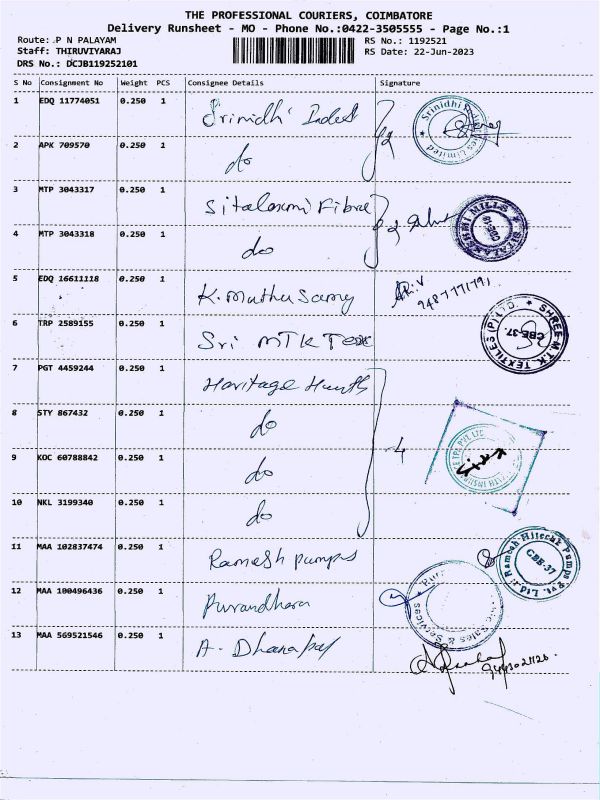 THE PROFESSIONAL COURIERS, COIMBATORE
Delivery Runsheet - MO - Phone No.:0422-3505555 - Page No.:1
Route: P N PALAYAM RS No.: 1192521
Staff: THIRUVIYARAJ RS Date: 22-Jun-2023
DRS No.: DCJB119252101
S No Consignment No Weight PCS Consignee Details Signature
1 EDQ 11774051 0.250 1 Srinidhi
2 APK 709570 0.250 1 do
3 MTP 3043317 0.250 1 Sitalaxmi Fibre
4 MTP 3043318 0.250 1 do
5 EDQ 16611118 0.250 1 K. Muthu Samy
6 TRP 2589155 0.250 1 Sri MTK
7 PGT 4459244 0.250 1 Haritage
8 STY 867432 0.250 1 do
9 KOC 60788842 0.250 1 do 4
10 NKL 3199340 0.250 1 do
11 MAA 102837474 0.250 1 Ramesh Pumps
12 MAA 100496436 0.250 1 Purandhara
13 MAA 569521546 0.250 1 A. Dhanapal
Srinidhi
Limited
SITALAKSHMI MILLS
SHREE M.T.K. TEXTILES (P) LTD.
CBE-37.
Hitech Pumps Pvt. Ltd.
CBE-37
Sales & Services